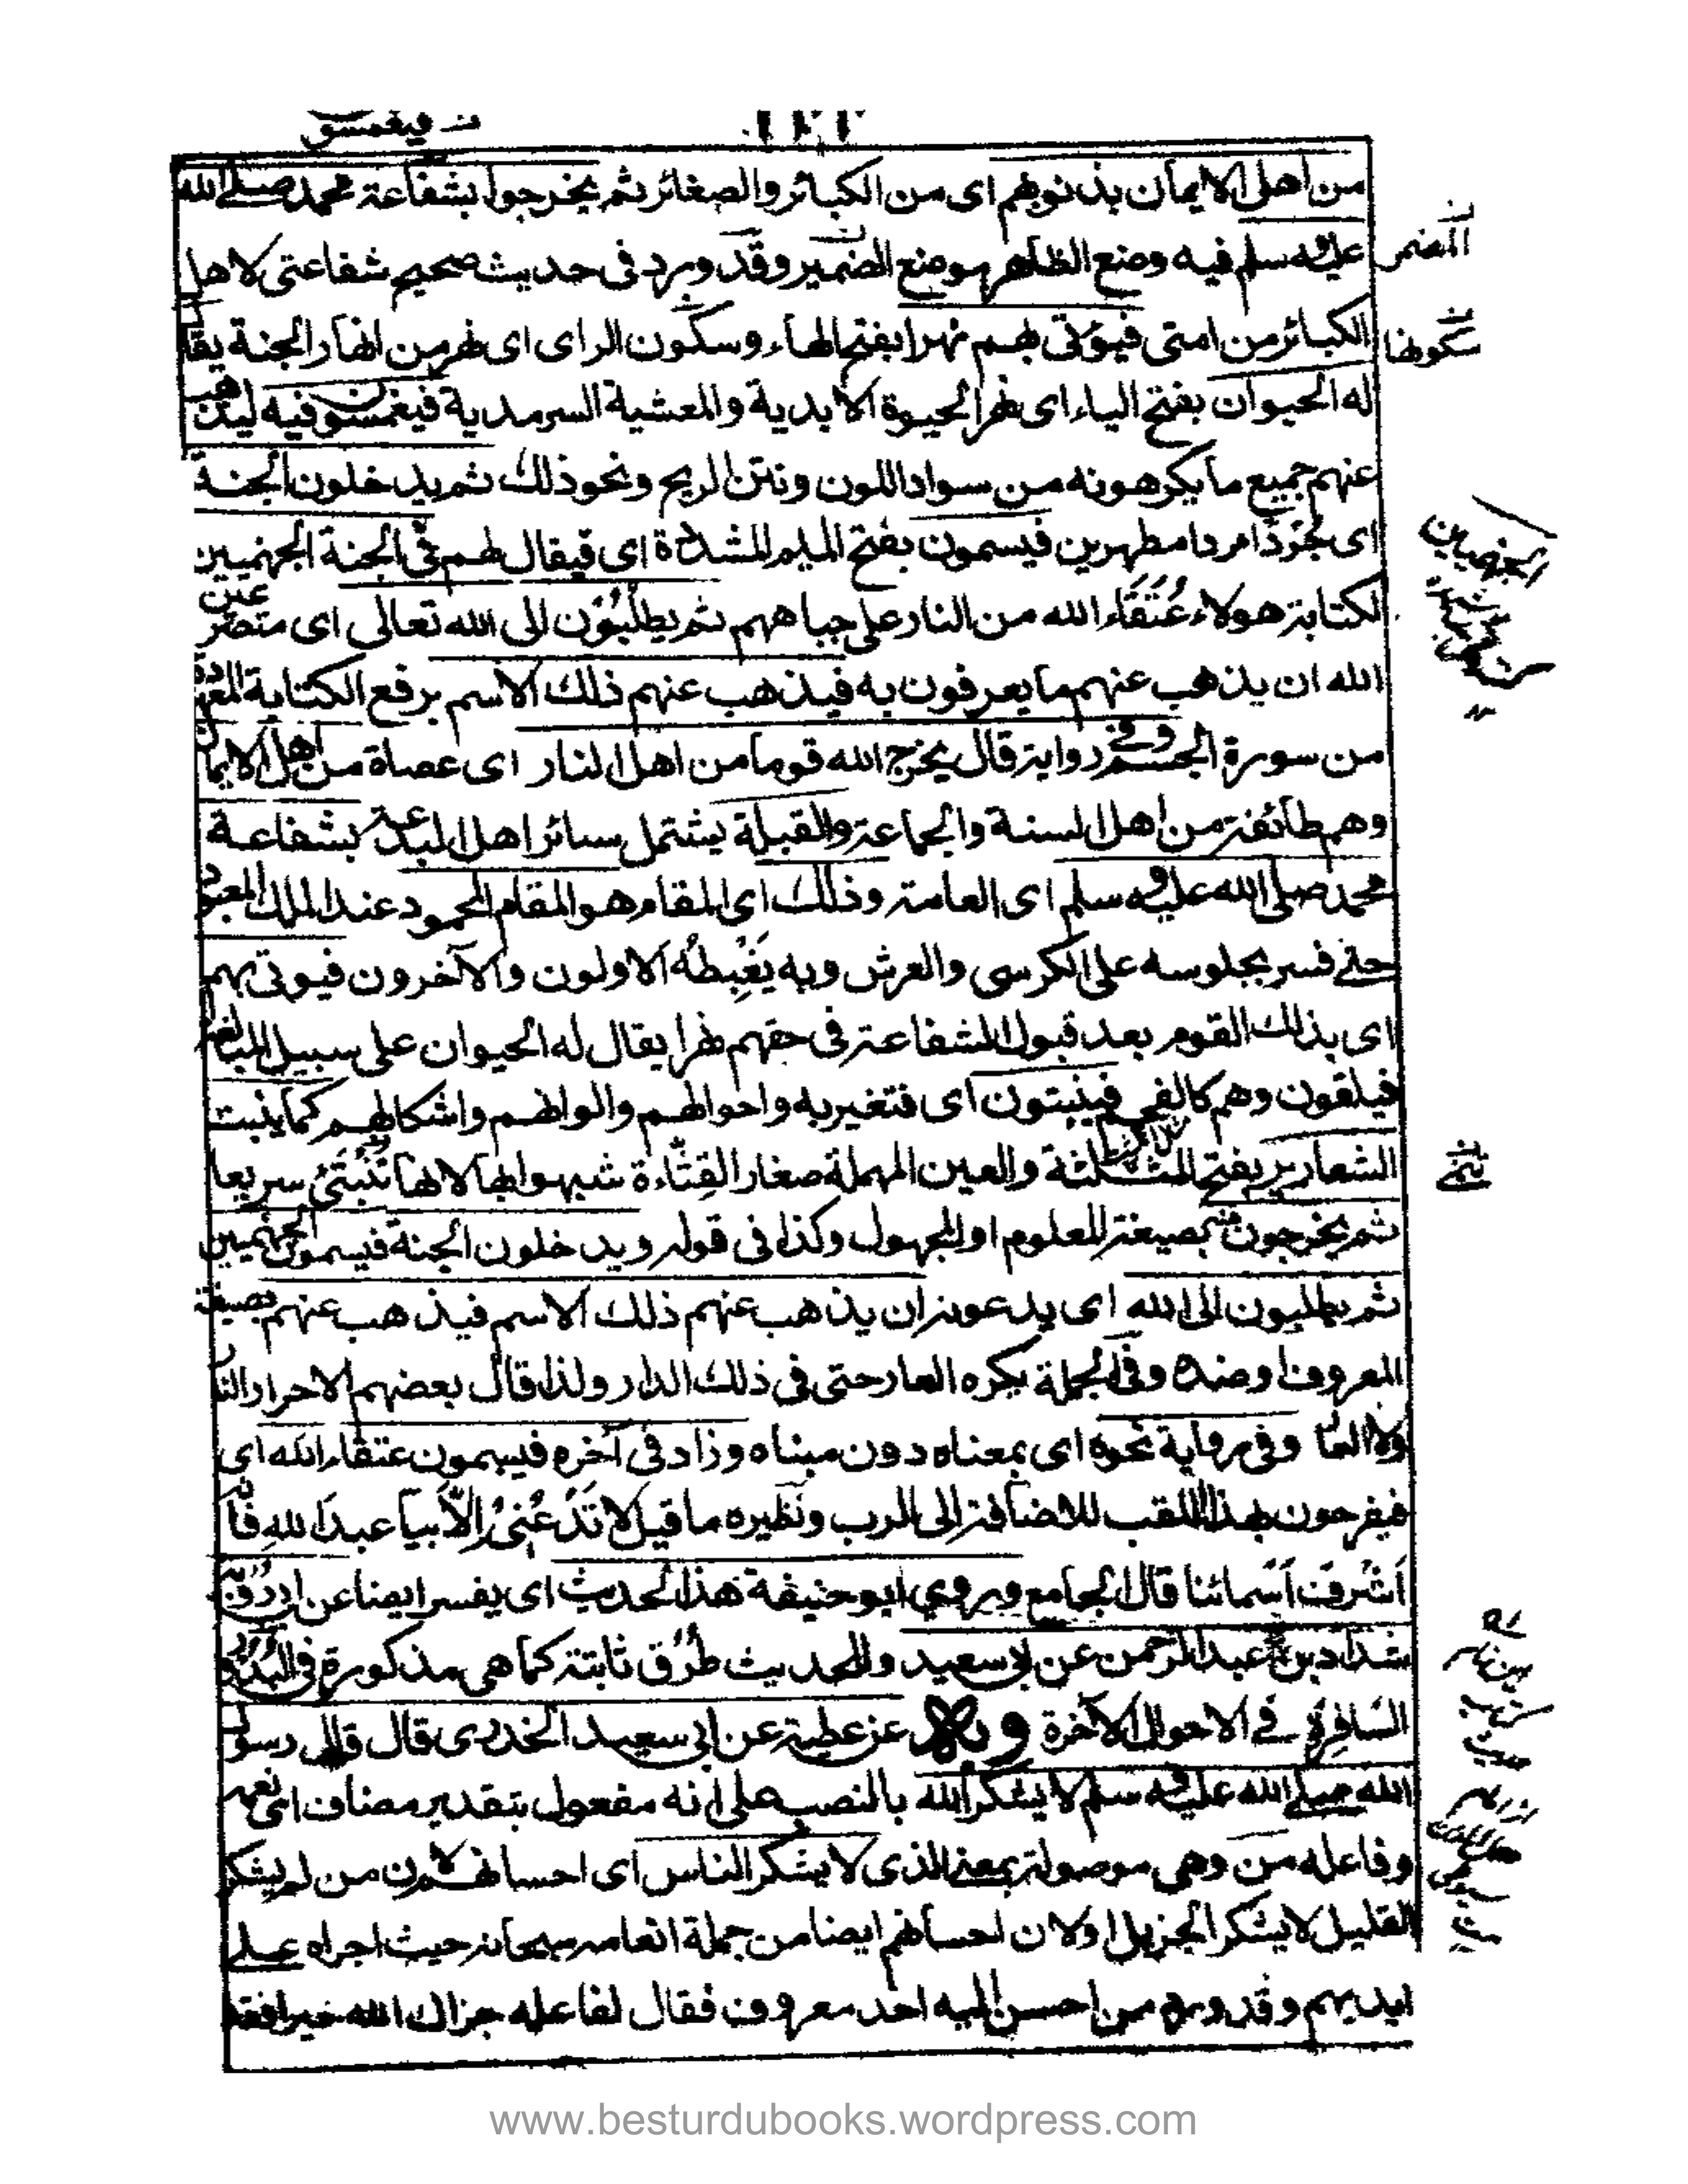 فيغمسون
من اهل الايمان بذنوبهم اى من الكبائر والصغائر ثم يخرجوا بشفاعة محمد صلى الله
عليه وسلم فيه وضع الظاهر موضع الضمير وقد ورد فى حديث صحيح شفاعتى لاهل
المضمر
الكبائر من امتى فيؤتى بهم نهرا بفتح الهاء وسكون الراى اى نهر من انهار الجنة يقال
سكونها
له الحيوان بفتح الياء اى نهر الحيوة الابدية والمعشية السرمدية فيغمسون فيه ليذهب
عنهم جميع ما يكرهونه من سواد اللون ونتن الريح ونحو ذلك ثم يدخلون الجنة
اى جردا مردا مطهرين فيسمون بفتح الميم المشددة اى فيقال لهم فى الجنة الجهنميين
لكتابة هولاء عُتَقَاء الله من النار على جباههم ثم يطلبون الى الله تعالى اى متضرعين
الله ان يذهب عنهم ما يعرفون به فيذهب عنهم ذلك الاسم برفع الكتابة المعهودة
من سورة الجسم وفى رواية قال يخرج الله قوما من اهل النار اى عصاة من اهل الايمان
وهم طائفة من اهل السنة والجماعة والقبلة يشتمل سائر اهل البدعة بشفاعة
محمد صلى الله عليه وسلم اى العامة وذلك اى المقام هو المقام المحمود عند الملك المعبود
حتى فسر بجلوسه على الكرسى والعرش وبه يَغْبِطُه الاولون والآخرون فيوتى بهم
اى بذلك القوم بعد قبول الشفاعة فى حقهم نهرا يقال له الحيوان على سبيل المبالغة
فيلقون وهم كالفحم فينبتون اى فتغير به واحوالهم والوانهم واشكالهم كما ينبت
الشعارير بفتح المثلثة والعين المهملة صغار القِثَّاءة شبهوا بها لانها تنبت سريعا
ثم يخرجون منه بصيغة المعلوم او المجهول وكذا فى قوله ويدخلون الجنة فيسمون الجهنميين
ثم يطلبون الى الله اى يدعونه ان يذهب عنهم ذلك الاسم فيذهب عنهم بصيغة
المعروف وضده وفى الجملة يكره العار حتى فى ذلك الدار ولذا قال بعضهم الاحرار النار
ولا العار وفى رواية نحوه اى بمعناه دون مبناه وزاد فى آخره فيسمون عتقاء الله اى
فيفرحون بهذا اللقب للاضافة الى الرب ونظيره ما قيل لا تَدْعُنِى اِلَّا بيا عبدَ اللهِ فانه
اَشْرفُ اَسْمائنا قال الجامع وروى ابو حنيفة هذا الحديث اى يفسر ايضا عن ابى روق
شداد بن عبد الرحمن عن ابى سعيد وللحديث طُرُق ثابتة كما هى مذكورة فى البدور
السافرة فى الاحوال الآخرة وبه عن عطية عن ابى سعيد الخدرى قال قال رسول
الله صلى الله عليه وسلم لا يشكر الله بالنصب على انه مفعول بتقدير مضاف اى نعم
وفاعله من وهى موصولة بمعنى الذى لا يشكر الناس اى احسانهم لان من لم يشكر
القليل لا يشكر الجزيل او لان احسانهم ايضا من جملة انعامه سبحانه حيث اجراه على
ايديهم وقد ورد من احسن اليه احد معروف فقال لفاعله جزاك الله خيرا فقد
www.besturdubooks.wordpress.com